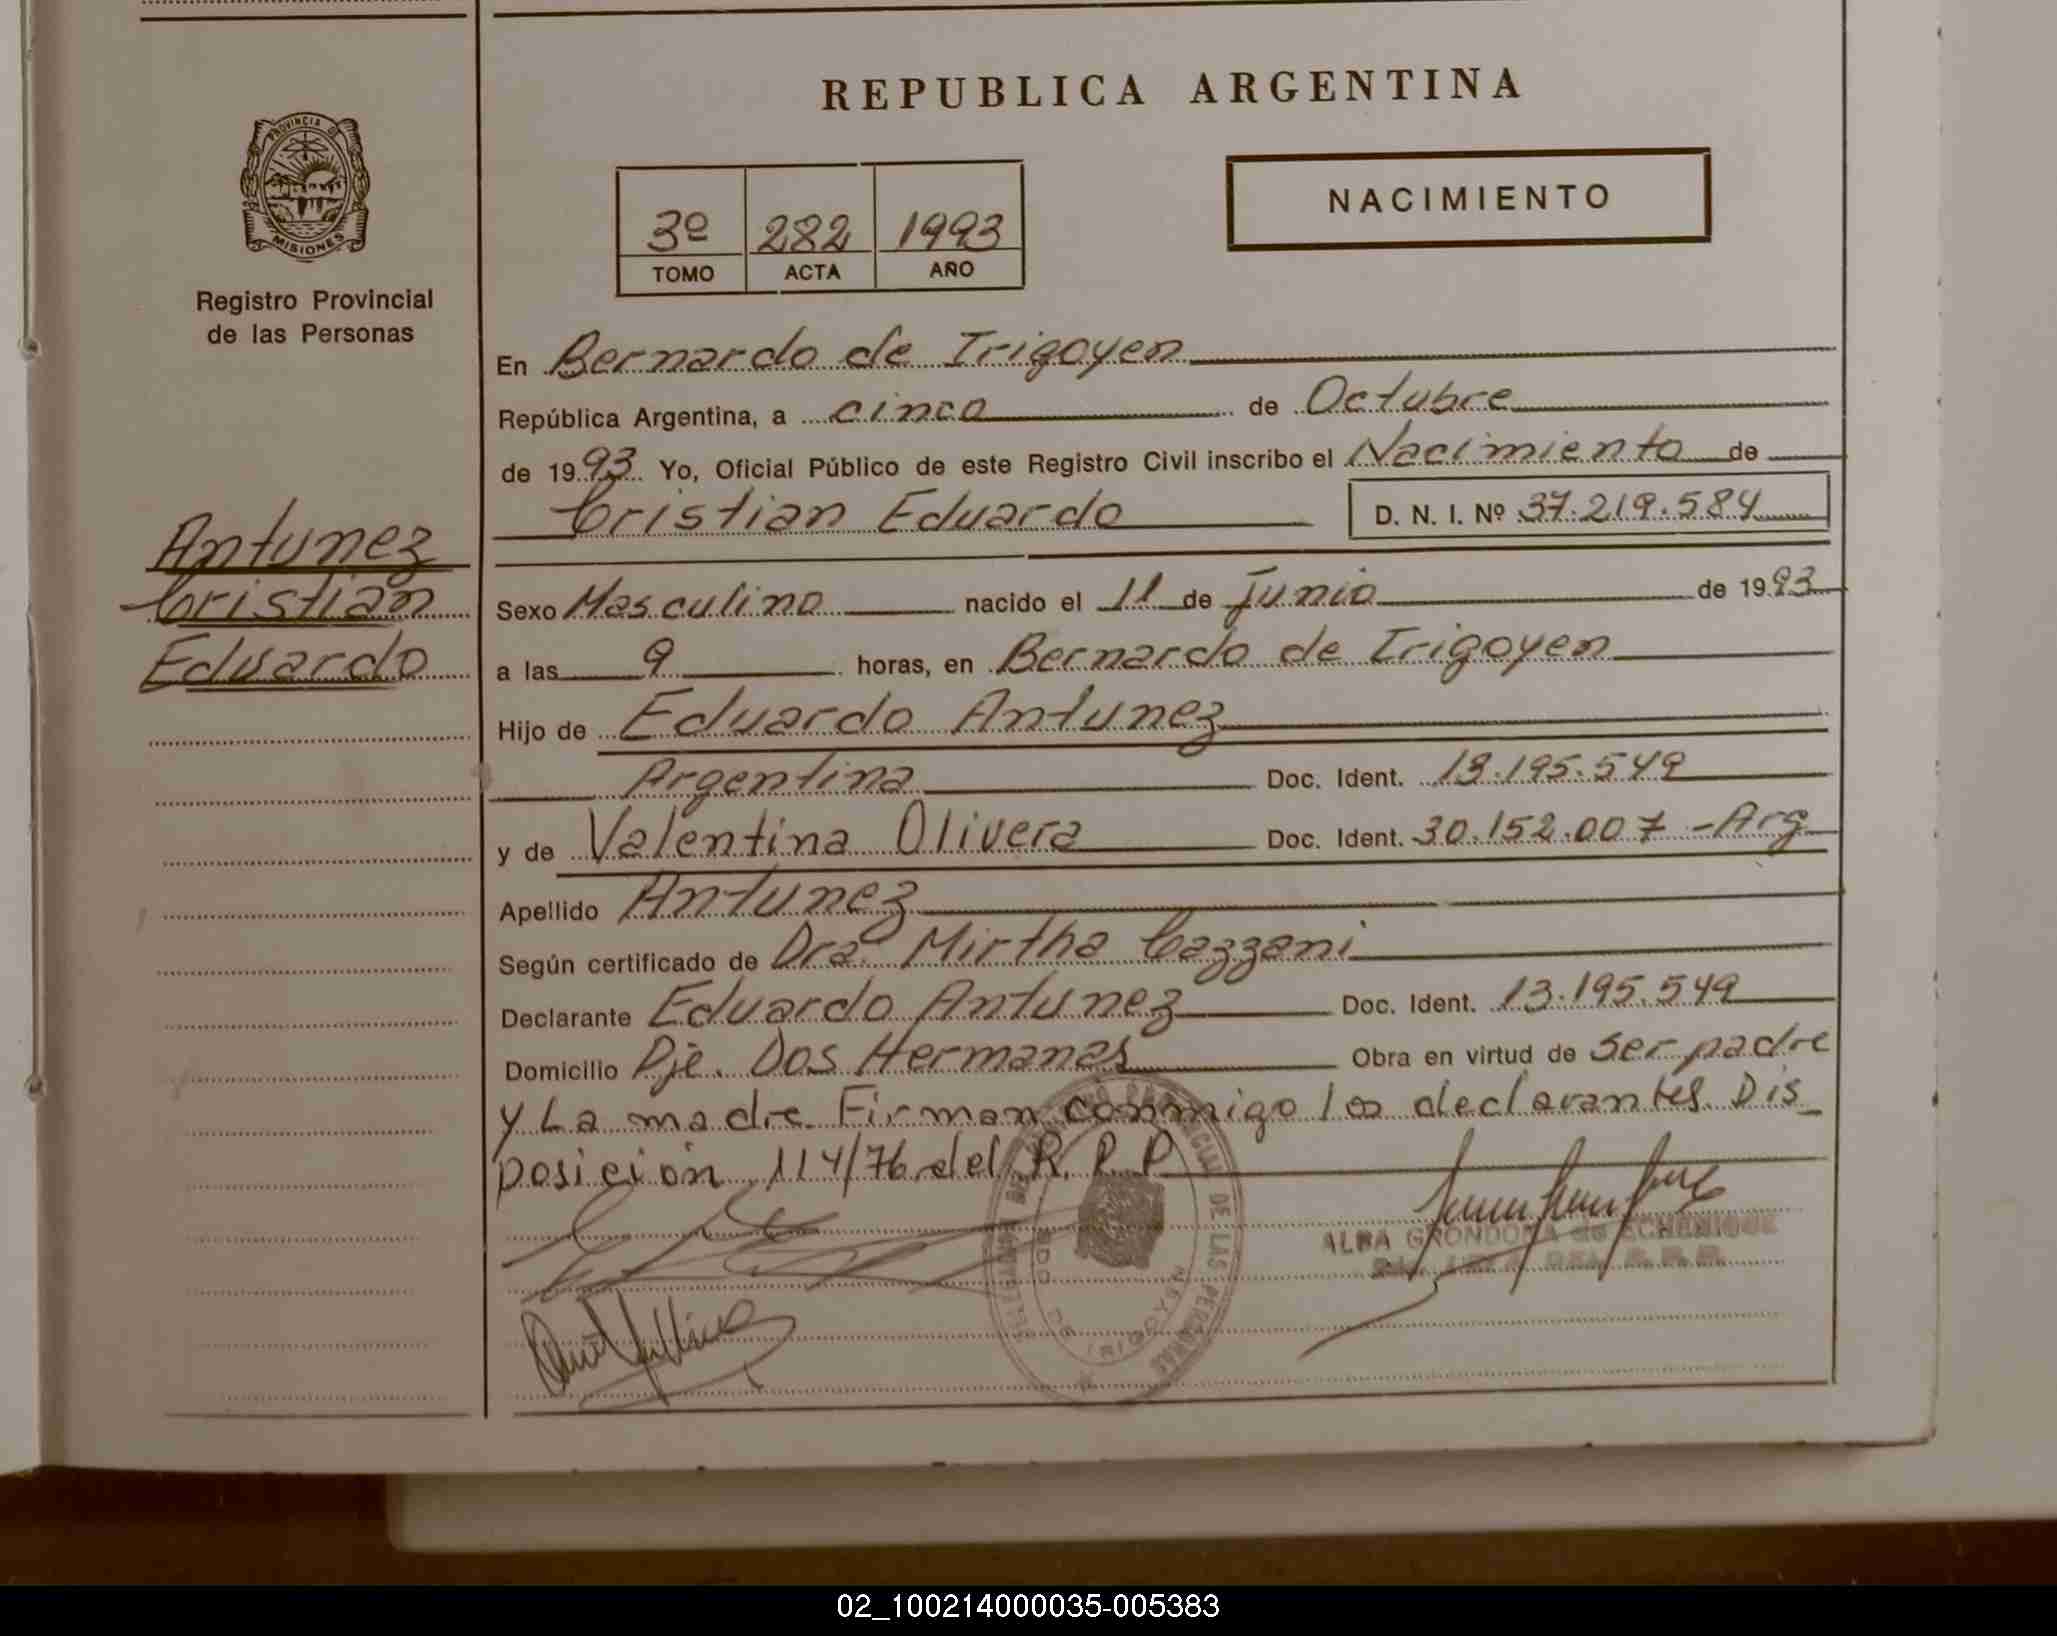 REPUBLICA ARGENTINA
PROVINCIA DE
MISIONES
Registro Provincial
de las Personas
NACIMIENTO
3º 282 1993
TOMO ACTA AÑO
En Bernardo de Irigoyen
República Argentina, a cinco de Octubre
de 1993 Yo, Oficial Público de este Registro Civil inscribo el Nacimiento de
Cristian Eduardo D. N. I. Nº 37.219.584
Antunez
Cristian
Eduardo
Sexo Masculino nacido el 11 de Junio de 1993
a las 9 horas, en Bernardo de Irigoyen
Hijo de Eduardo Antunez
Argentina Doc. Ident. 13.195.549
y de Valentina Olivera Doc. Ident. 30.152.007 - Arg
Apellido Antunez
Según certificado de Dra. Mirtha Cazzani
Declarante Eduardo Antunez Doc. Ident. 13.195.549
Domicilio Pje. Dos Hermanas Obra en virtud de ser padre
y La madre. Firman conmigo los declarantes. Dis_
posición 114/76 del R. P. P
ALBA GRONDONA de ECHENIQUE
DE LAS PERSONAS
02_100214000035-005383